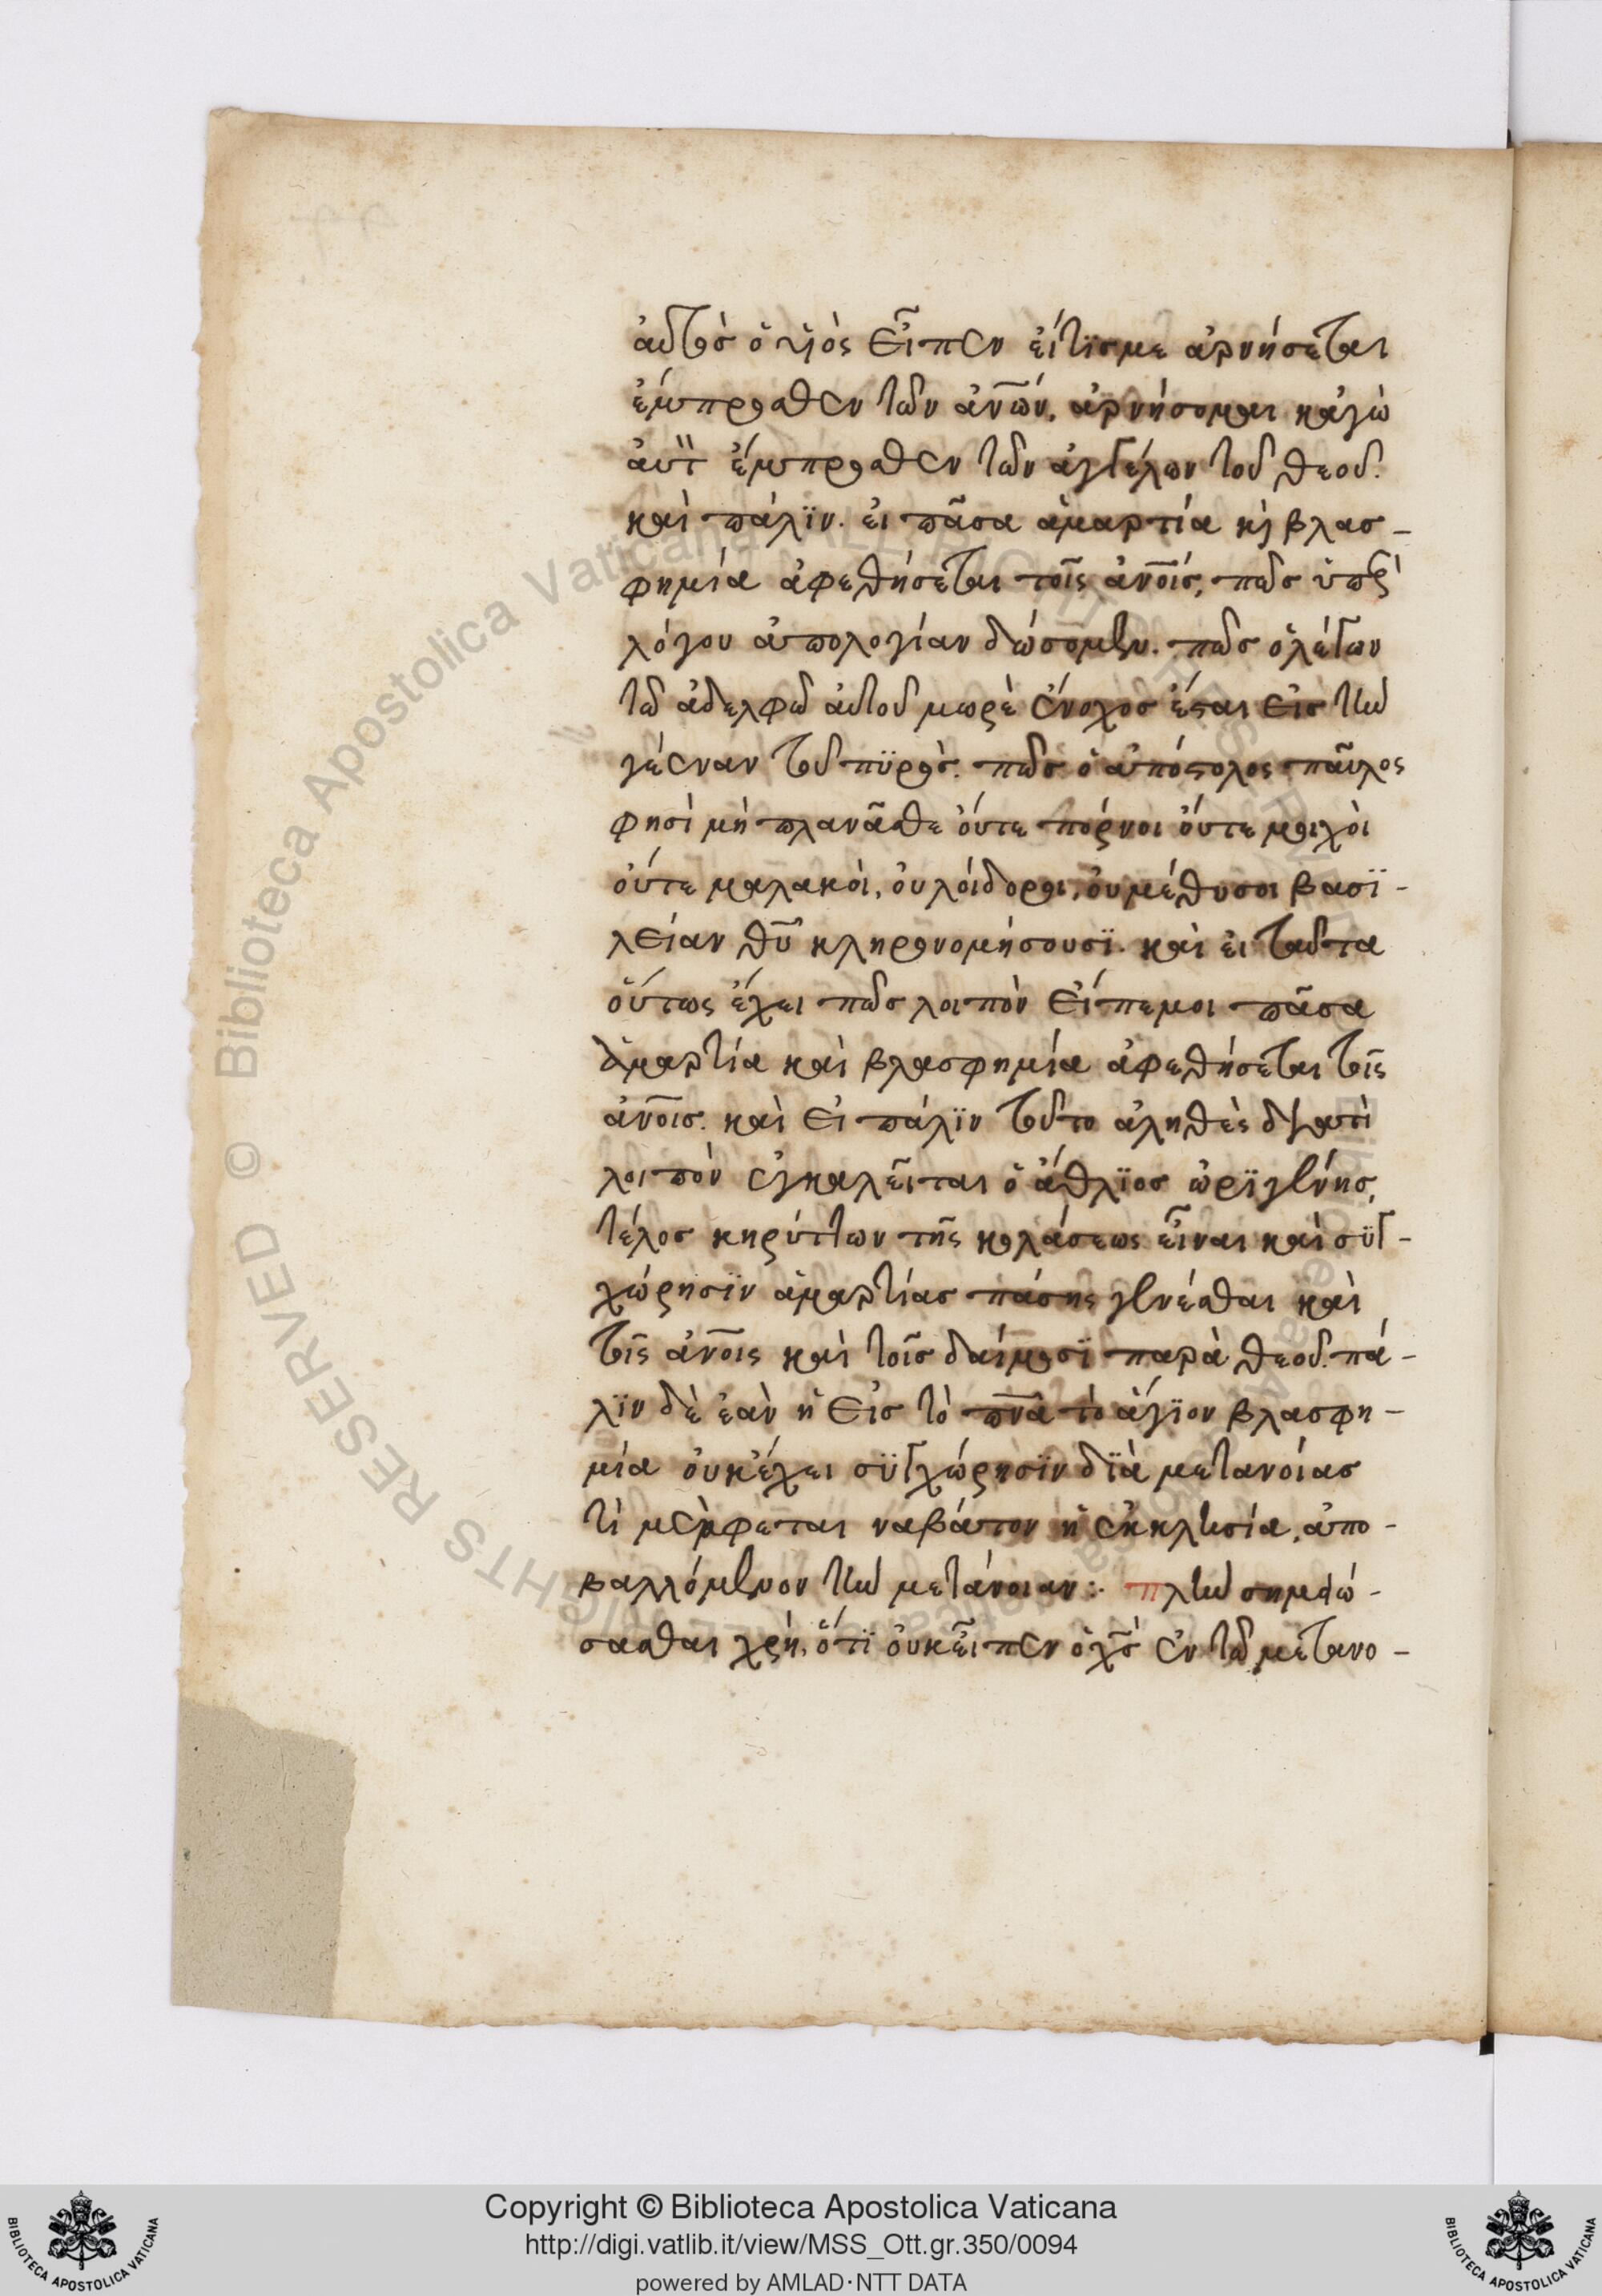 ἀυτὸσ ὁ υἱὸς εἶπεν ἐίτϊσμε ἀρνήσεται
ἔμπροσθεν τῶν ἀν̅ων, ἀρνήσομαι κἀγὼ
ἀυτ̎ ἔμπροσθεν τῶν ἀγγέλων τοῦ θεοῦ.
καὶ πάλϊν. ἐι πᾶσα ἁμαρτία κ̀ βλασ-
φημία ἀφεθήσεται τοῖς ἀν̅οις, πῶσ ὑπὲρ
λόγου ἀπολογίαν δώσομεν. πῶσ ὁλέγων
τῶ ἀδελφῶ ἀυτοῦ μωρὲ ἔνοχοσ ἔσται εἰσ τὴν
γέεναν τοῦ πϋρὸσ. πῶσ ὁ ἀπόστολος παῦλος
φησὶ μὴ πλανᾶσθε ὄυτε πόρνοι ὄυτε μοιχὸι
ὄυτε μαλακὸι, ὀυ λόιδοροι, ὀυ μέθυσοι βασϊ-
λείαν θ̅υ κληρονομήσουσϊ. καὶ ἐι ταῦτα
ὅυτως ἔχει πῶσ λοιπὸν εἴπεμοι πᾶσα
ἁμαρτία καὶ βλασφημία ἀφεθήσεται τοῖς
ἀν̅οισ. καὶ εἰ πάλϊν τοῦτο ἀληθὲς διατὶ
λοιπὸν ἐγκαλεῖται ὁ ἄθλϊοσ ὠρϊγένησ,
τέλοσ κηρύττων τῆς κολάσεως εἶναι καὶ σϋγ-
χώρησϊν ἁμαρτίασ πάσης γενέσθαι καὶ
τοῖς ἀν̅οις καὶ τοῖσ δαίμοσϊ παρὰ θεοῦ. πά-
λϊν δὲ ἐὰν ἡ εἰσ τὸ πν̅α τὸ ἅγϊον βλασφη-
μία ὀυκ ἔχει σϋγχώρησϊν δϊὰ μετανόιασ
τὶ μέμφεται ναβάτον ἡ ἐκκλησία, ἀπο-
βαλλόμενον τὴν μετάνοιαν :. πλὴν σημειώ-
σασθαι χρὴ, ὅτϊ ὀυκ εἶπεν ὁ χ̅σ ἐν τῶ μετανο-
Copyright © Biblioteca Apostolica Vaticana
http://digi.vatlib.it/view/MSS_Ott.gr.350/0094
powered by AMLAD·NTT DATA